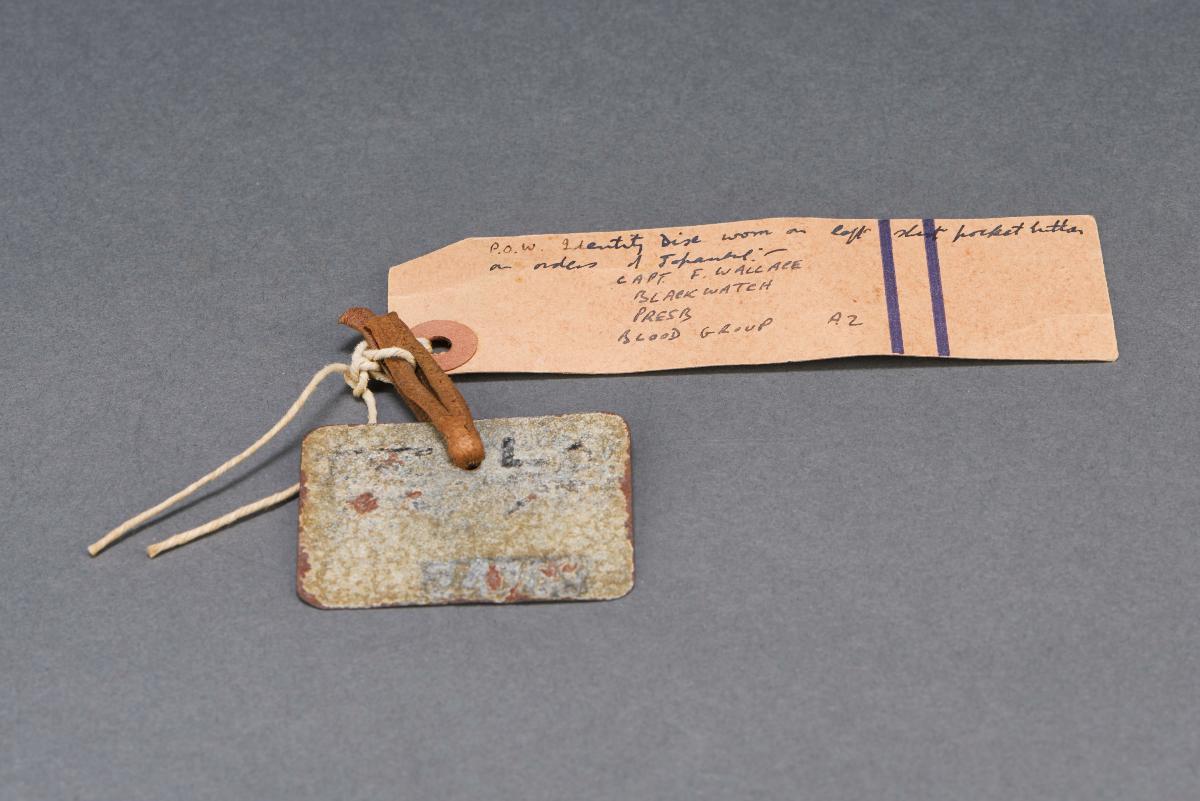 P.O.W. Identity Disc worn on left shirt pocket button
on orders of Japanese:-
CAPT. F. WALLACE
BLACK WATCH
PRESB
BLOOD GROUP A2
L